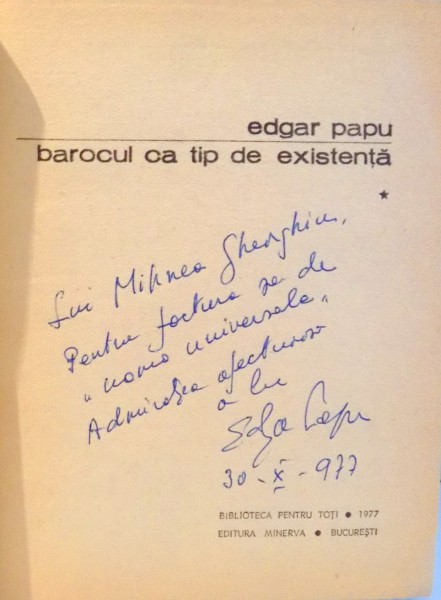 edgar papu
barocul ca tip de existență
*
Lui Mihnea Gheorghiu,
Pentru factura sa de
"uomo universale"
Admirația afectuoasă
a lui
Edgar Papu
30-X-977
BIBLIOTECA PENTRU TOȚI • 1977
EDITURA MINERVA • BUCUREȘTI